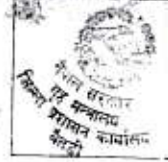 नेपाल सरकार
गृह मन्त्रालय
जिल्ला प्रशासन कार्यालय
बैतडी